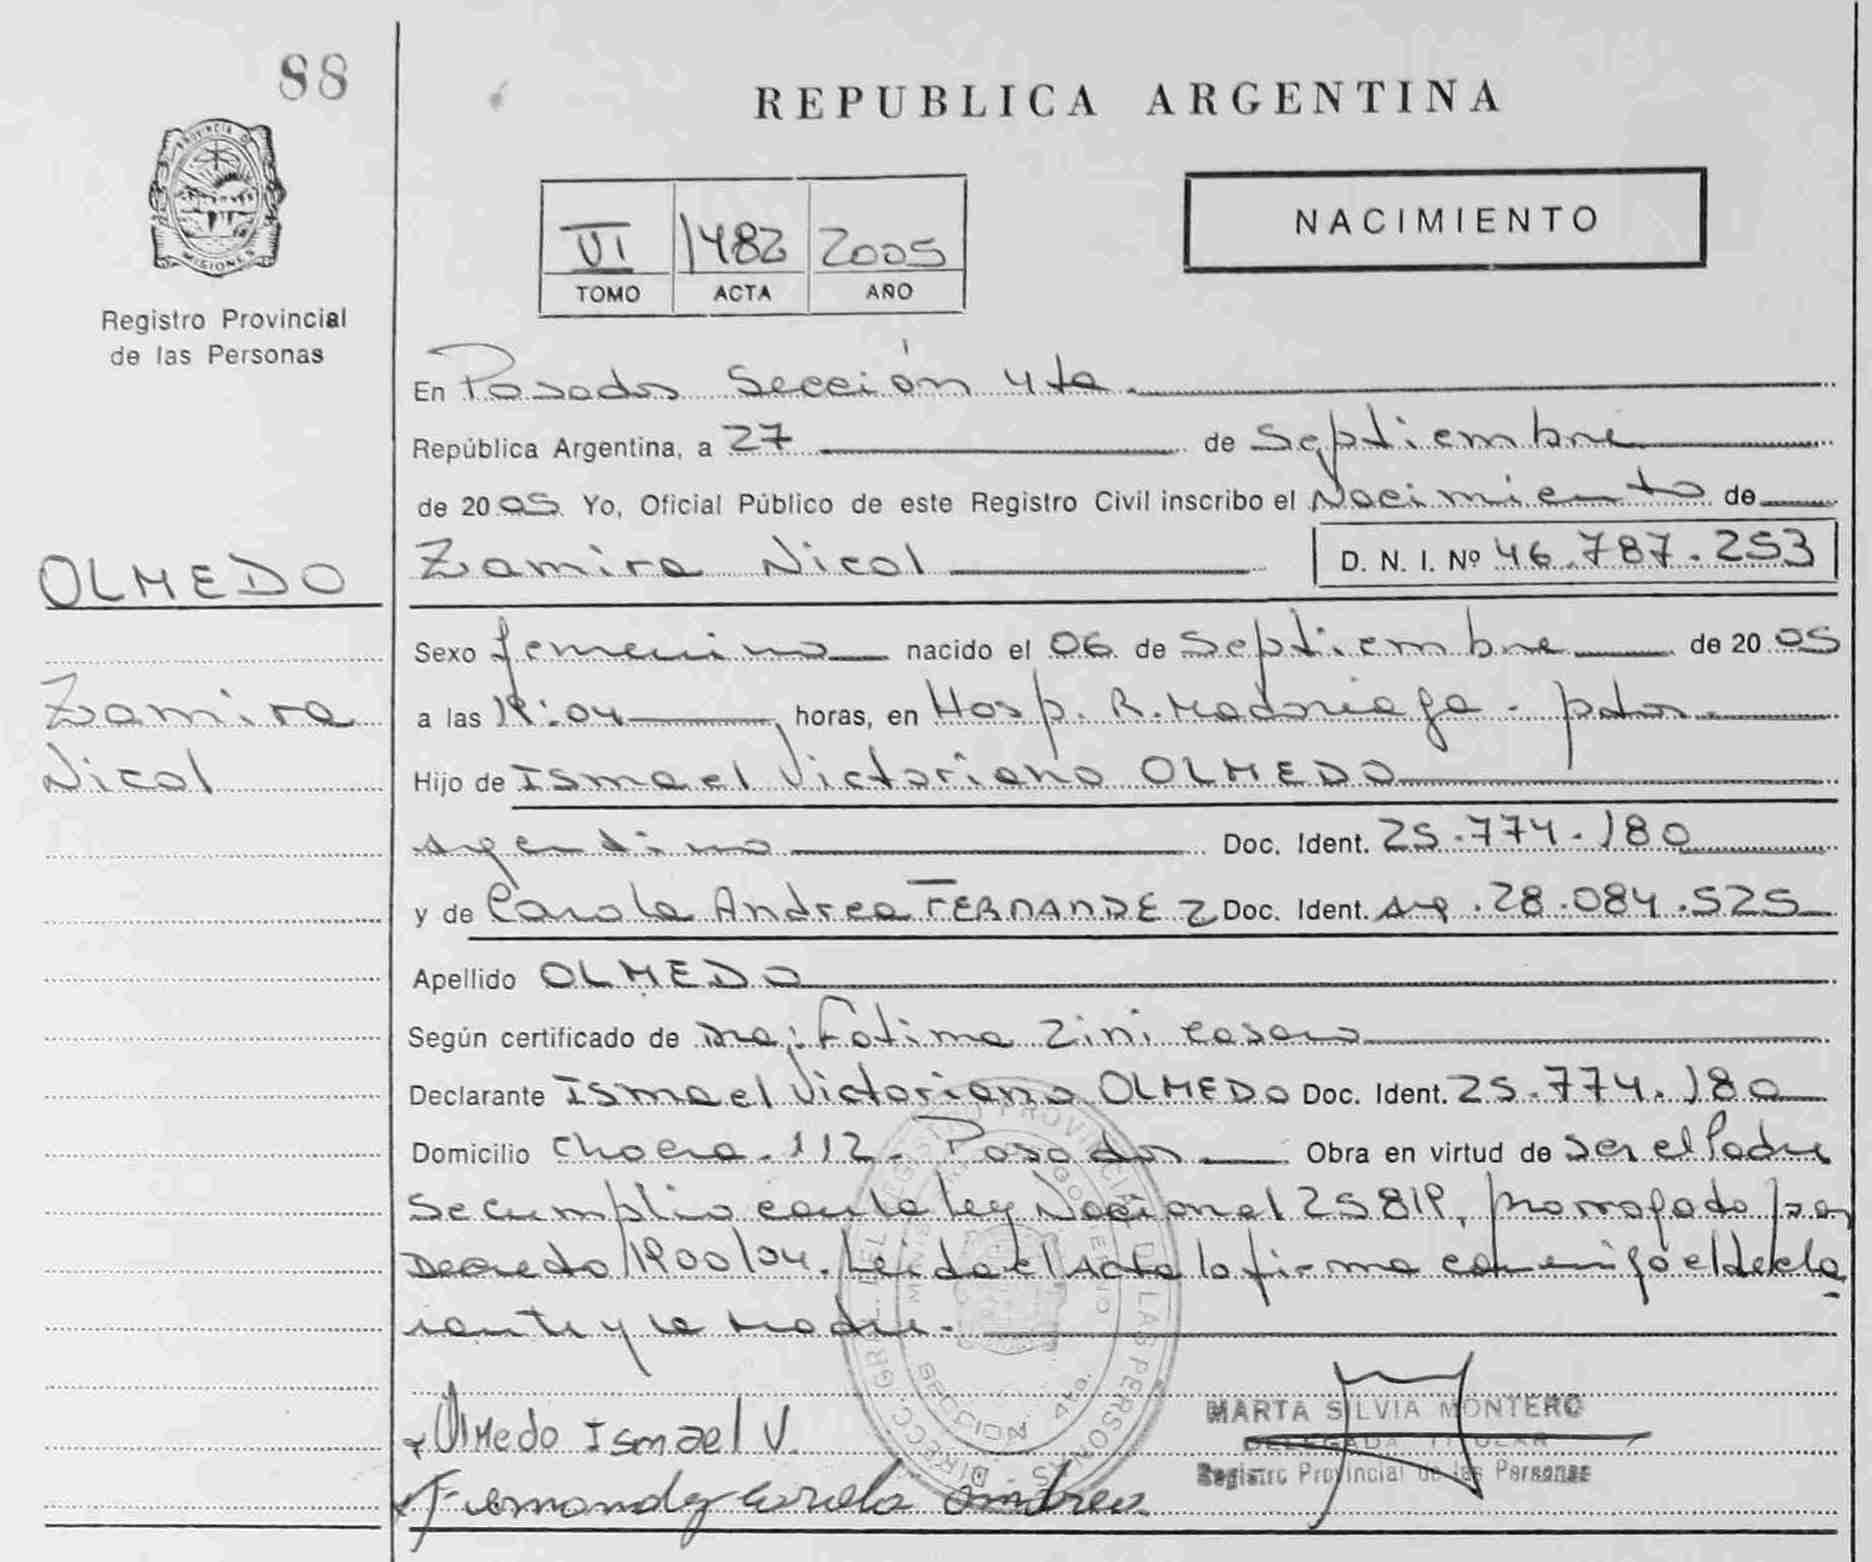 88
PROVINCIA DE MISIONES
Registro Provincial
de las Personas
REPUBLICA ARGENTINA
VI 1482 2005
TOMO ACTA AÑO
NACIMIENTO
En Posadas Sección 4ta
República Argentina, a 27 de Septiembre
de 2005 Yo, Oficial Público de este Registro Civil inscribo el Nacimiento de
OLMEDO
Zamira Nicol D. N. I. Nº 46.787.253
Sexo femenino nacido el 06 de Septiembre de 2005
Zamira
Nicol
a las 19:04 horas, en Hosp. R. Madariaga - pdas.
Hijo de Ismael Victoriano OLMEDO
argentino Doc. Ident. 25.774.180
y de Carola Andrea FERNANDEZ Doc. Ident. Arg. 28.084.525
Apellido OLMEDO
Según certificado de Dra: Fatima Zini
Declarante Ismael Victoriano OLMEDO Doc. Ident. 25.774.180
Domicilio Chacra. 112. Posadas Obra en virtud de ser el Padre
Se cumplio con la ley Nacional 25819, prorrogado por
Decreto 1900/04. Leida el Acta la firma conmigo el decla
rante y la madre.-
Olmedo Ismael V.
Fernandez Carola Andrea
MARTA SILVIA MONTERO
DELEGADA TITULAR
Registro Provincial de las Personas
DIRECC. GRL. DEL REGISTRO PROVINCIAL DE LAS PERSONAS
SECCION 4ta.